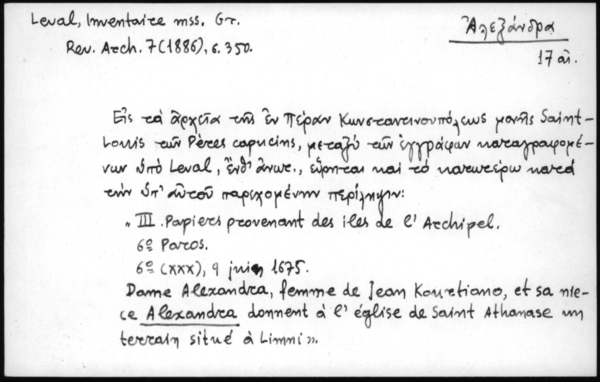 Leval, Inventaire mss. Gr.
Ἀλεξάνδρα
Rev. Arch. 7 (1886), σ. 350.
17 αἰ.
Εἰς τὰ ἀρχεῖα τῆς ἐν Πέραν Κωνσταντινουπόλεως μονῆς Saint-
Louis τῶν Pères capucins, μεταξὺ τῶν ἐγγράφων καταγραφομέ-
νων ὑπὸ Leval, ἔνθ' ἀνωτ., εὕρηται καὶ τὸ κατωτέρω κατὰ
τὴν ὑπ' αὐτοῦ παρεχομένην περίληψιν:
„ III. Papiers provenant des iles de l' Archipel.
6º Paros.
6º (xxx), 9 juin 1675.
Dame Alexandra, femme de Jean Kouretiano, et sa niè-
ce Alexandra donnent à l' église de Saint Athanase un
terrain situé à Limni ».